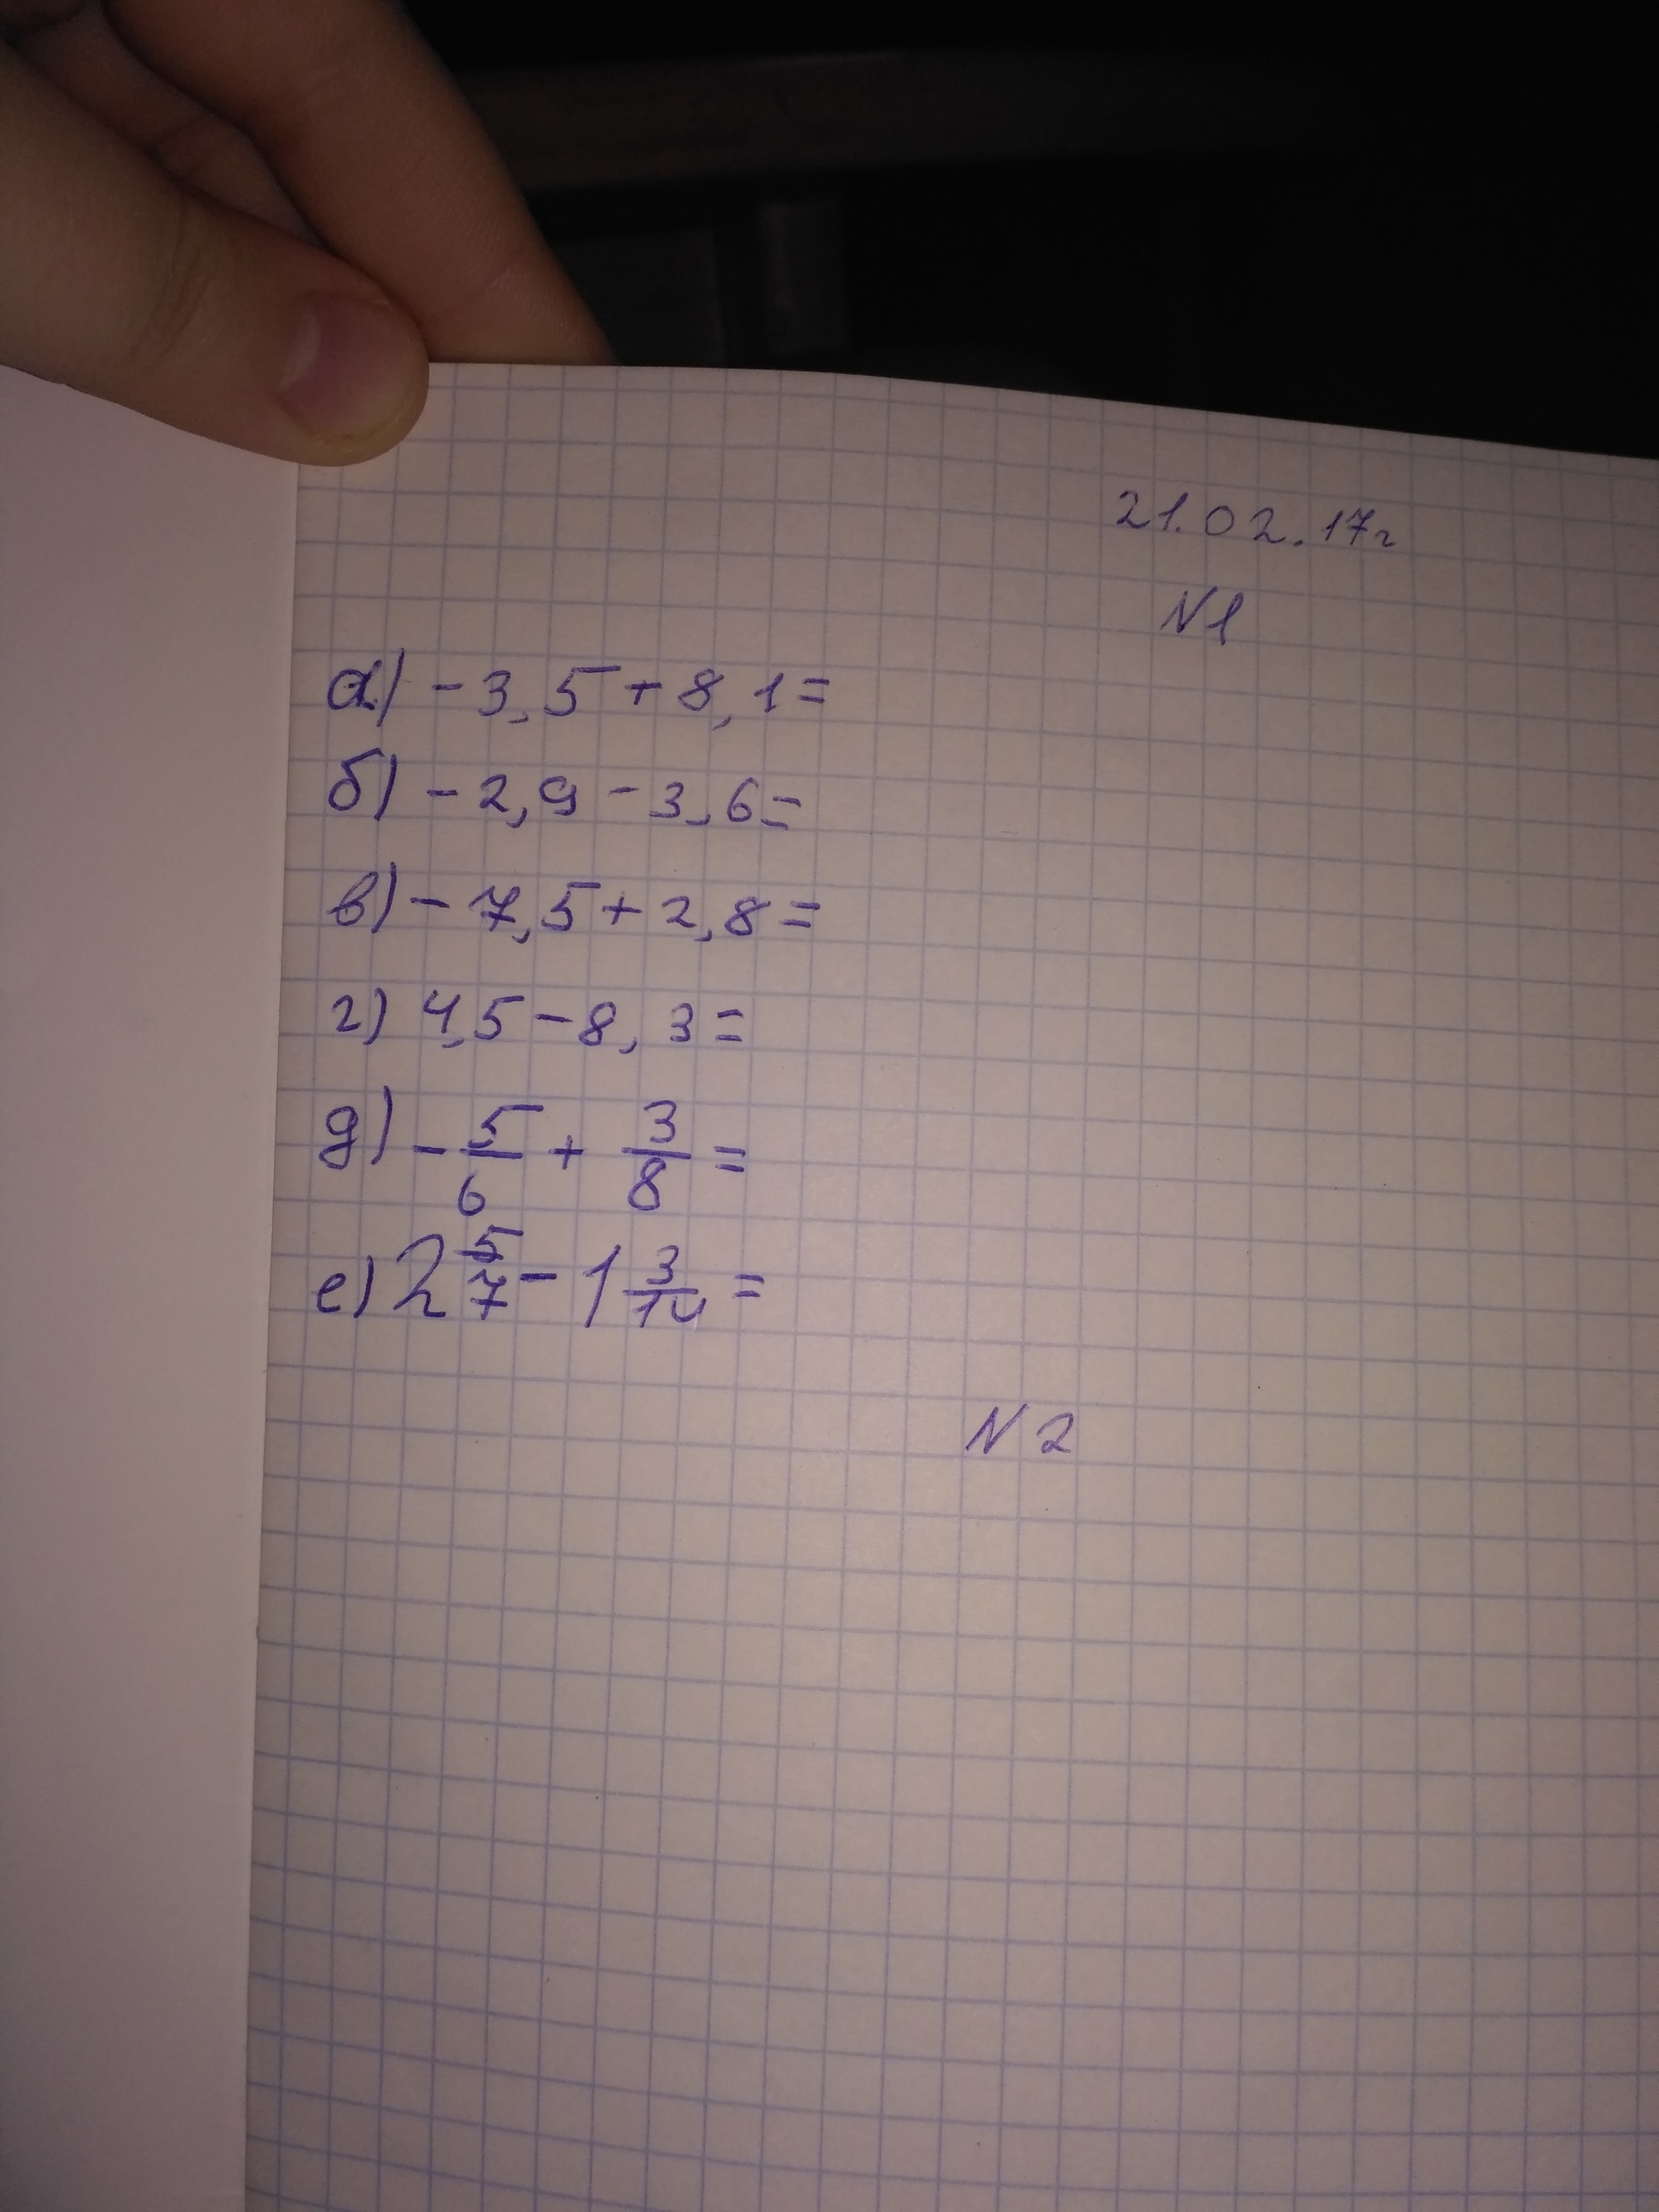 21.02.17г
N1
а) -3,5+8,1=
б) -2,9-3,6=
в) -7,5+2,8=
г) 4,5-8,3=
д) -5/6 + 3/8 =
е) 2 5/7 - 1 3/14 =
N2